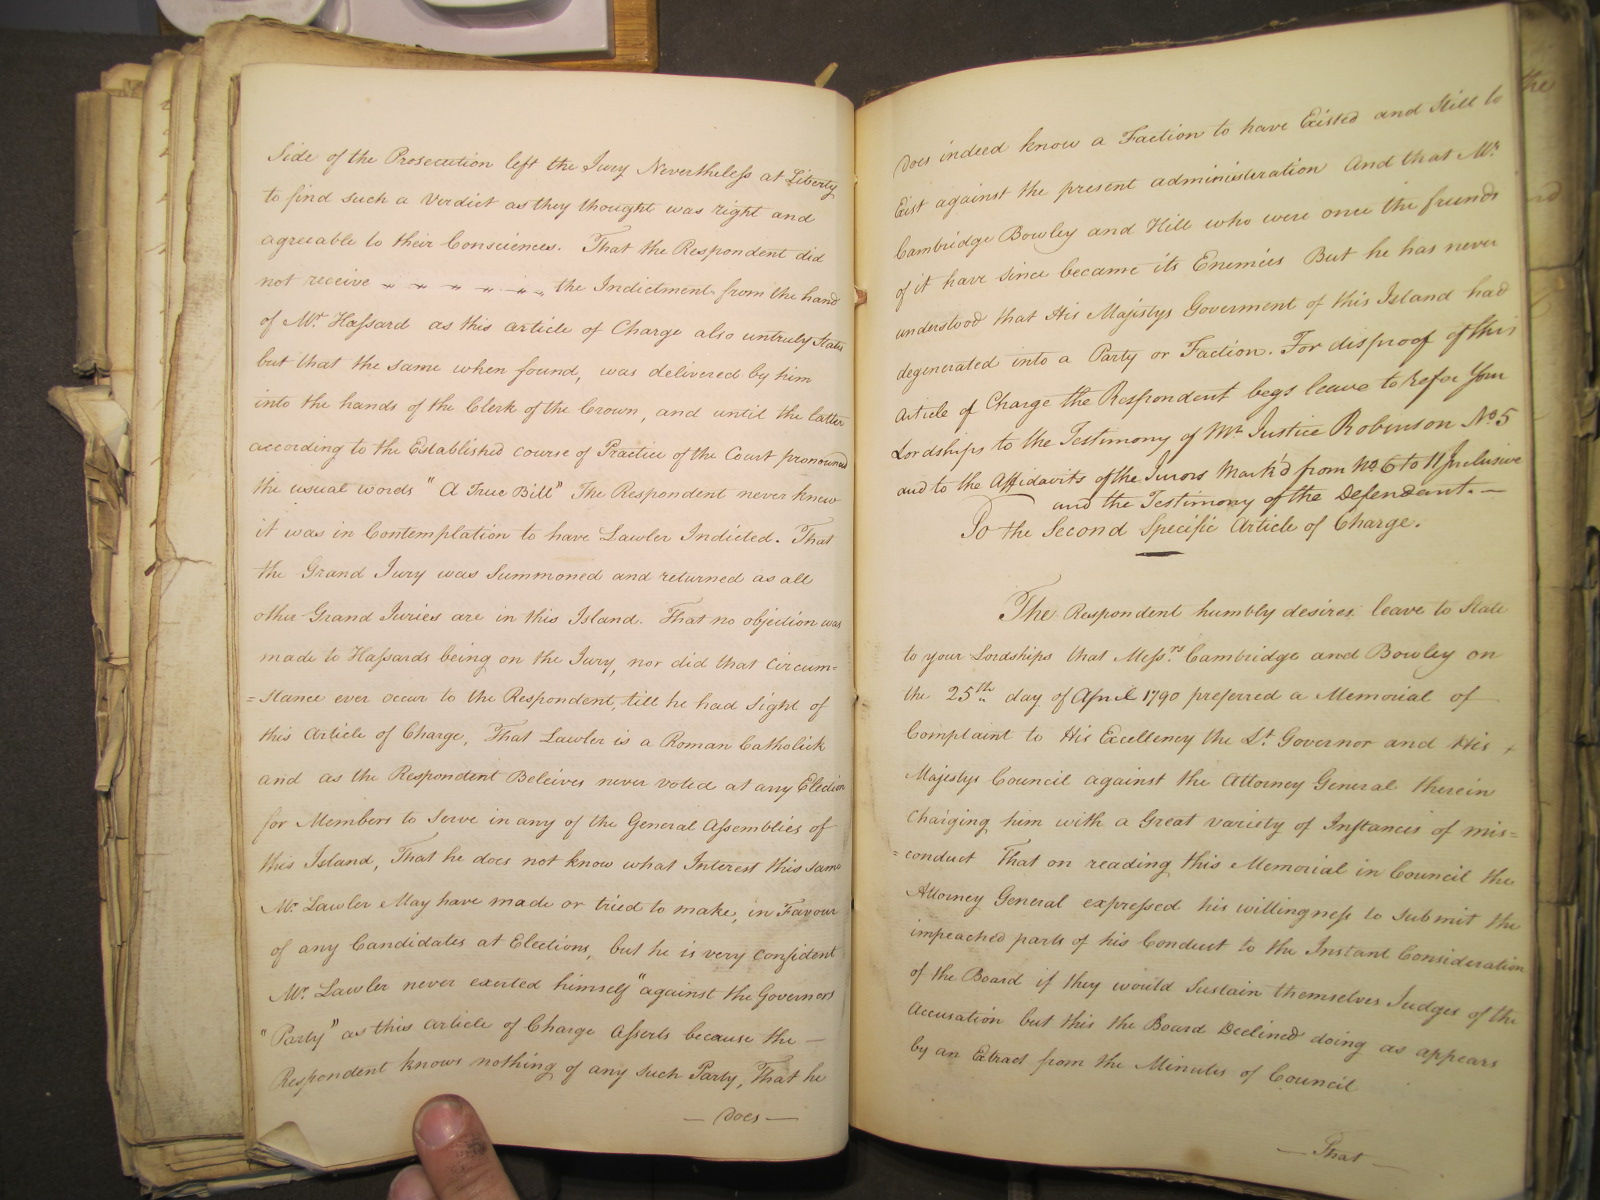 Side of the Prosecution left the Jury Nevertheless at Liberty
to find such a Verdict as they thought was right and
agreeable to their Consciences. That the Respondent did
not receive " " " " " " the Indictment from the hand
of Mr. Hassard as this article of Charge also untruly States
but that the same when found, was delivered by him
into the hands of the Clerk of the Crown, and until the latter
according to the Established course of Practice of the Court pronounced
the usual words "A True Bill" The Respondent never knew
it was in Contemplation to have Lawler Indicted. That
the Grand Jury was Summoned and returned as all
other Grand Juries are in this Island. That no objection was
made to Hassards being on the Jury, nor did that Circum=
=stance ever occur to the Respondent, till he had Sight of
this Article of Charge, That Lawler is a Roman Catholick
and as the Respondent Beleives never voted at any Election
for Members to Serve in any of the General Assemblies of
this Island, That he does not know what Interest this same
Mr. Lawler May have made or tried to make, in Favour
of any Candidates at Elections, but he is very confident
Mr. Lawler never exerted himself "against the Governors
"Party" as this article of Charge Asserts because the —
Respondent knows nothing of any such Party, That he
— Does —
Does indeed know a Faction to have Existed and Still to
Exist against the present administration And that Mrs.
Cambridge Bowley and Hill who were once the friends
of it have since became its Enemies But he has never
understood that His Majestys Goverment of this Island had
degenerated into a Party or Faction. For disproof of this
article of Charge the Respondent begs leave to refer Your
Lordships to the Testimony of Mr. Justice Robinson No 5
and to the Affidavits of the Jurors Mark'd from No 6 to 11 Inclusive
and the Testimony of the Defendant. —
To the Second Specific Article of Charge.
The Respondent humbly desires leave to State
to your Lordships that Messrs. Cambridge and Bowley on
the 25th day of April 1790 preferred a Memorial of
Complaint to His Excellency the Lt. Governor and His
Majestys Council against the Attorney General therein
Charging him with a Great variety of Instances of mis=
=conduct That on reading this Memorial in Council the
Attorney General expressed his willingness to submit the
impeached parts of his Conduct to the Instant Consideration
of the Board if they would Sustain themselves Judges of the
Accusation but this the Board Declined doing as appears
by an Extract from the Minutes of Council
— That —
the